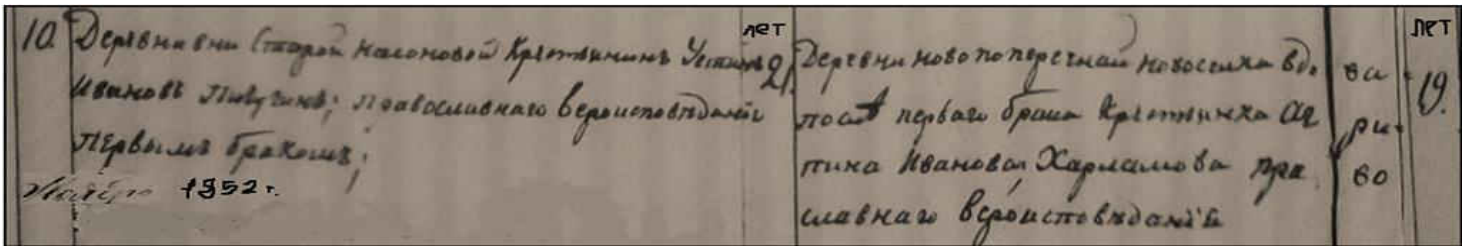 10. Деревни Старой Насоновой Крестьянинъ Устинъ
Ивановъ Пивучинъ; православнаго вероисповѣданія
первымъ бракомъ;
1952 г.
лет
21.
Деревни Новопоперечной новоселка вдо ва
после первого брака Крестьянка Ага ри
пина Иванова Харламова пра во
славнаго вероисповѣданія
лет
19.